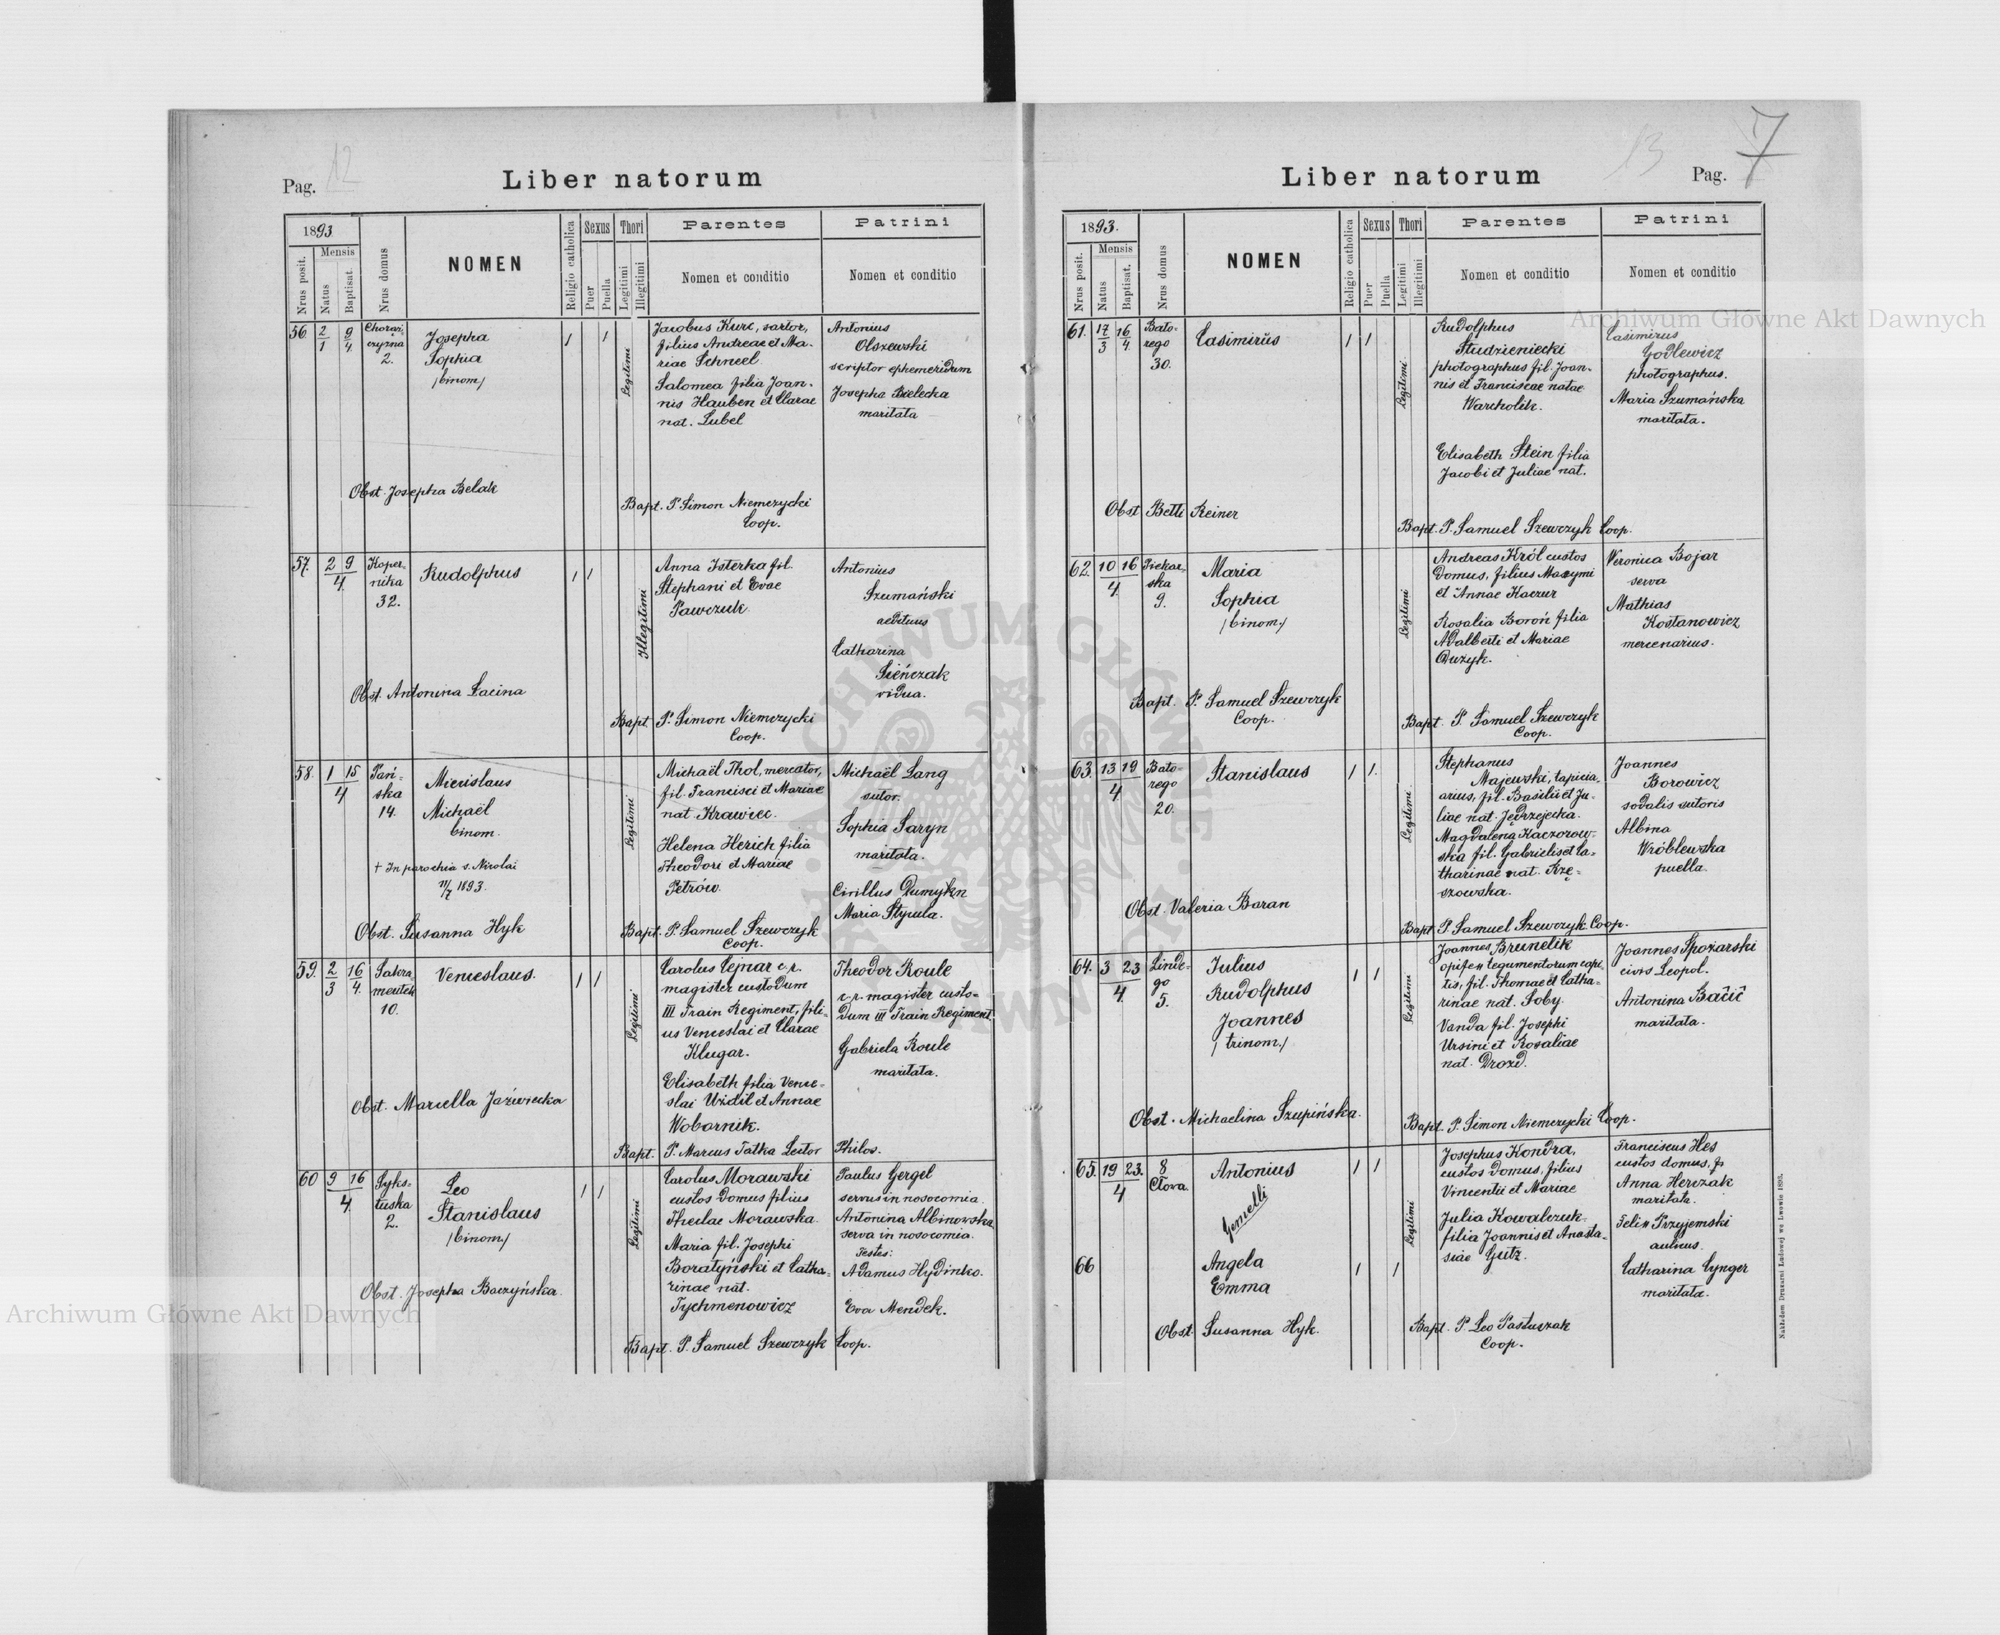 12
Pag.
Liber natorum
1893
Nrus posit.
Mensis
Natus
Baptisat.
Nrus domus
NOMEN
Religio catholica
Sexus
Puer
Puella
Thori
Legitimi
Illegitimi
Parentes
Nomen et conditio
Patrini
Nomen et conditio
56
2/1
9/4
2.
Josepha
Sophia
/binom/
Legitimi
Jacobus Kurc, sartor,
filius Andreae et Ma-
riae Schneel.
Salomea filia Joan-
nis Hauben et Clarae
nat. Lubel
Antonius
Olszewski
scriptor ephemeridum
Josepha Bielecka
maritata
Obst. Josepha Belak
Bapt. P. Simon Niemczycki
Coop.
57.
2 9
4.
Koper-
nika
32.
Rudolphus
Illegitimi
Anna Isterka fil.
Stephani et Evae
Pawczuk.
Antonius
Szumański
aedituus
Catharina
Sieńczak
vidua.
Obst. Antonina Lacina
Bapt. P. Simon Niemczycki
Coop.
58.
1 15
4
Pań-
ska
14.
Miecislaus
Michaël
binom.
† In parochia s. Nicolai
11/7 1893.
Legitimi
Michaël Thol, mercator,
fil. Francisci et Mariae
nat. Krawiec.
Helena Herich filia
Theodori et Mariae
Petrów.
Michaël Lang
sutor.
Sophia Saryn
maritata.
Cirillus
Maria Stypula.
Obst. Susanna Hyk
Bapt. P. Samuel Szewczyk
Coop.
59.
2/3
16/4.
10.
Venceslaus.
Legitimi
Carolus Cejnar c. r.
magister custodum
III Train Regiment, fili-
us Venceslai et Clarae
Klugar.
Elisabeth filia Vence-
slai Uždil et Annae
Wobornik.
Theodor Koule
c. r. magister custo-
dum III Train Regiment
Gabriela Koule
maritata.
Obst. Marcella Jaźwiecka
Bapt. P. Marcus Tatka Lector Philos.
60
9 16
4.
Syks-
tuska
2.
Leo
Stanislaus
/binom/
Legitimi
Carolus Morawski
custos domus filius
Theclae Morawska.
Maria fil. Josephi
Boratyński et Catha-
rinae nat.
Tychmenowicz
Paulus Gergel
servus in nosocomia.
Antonina Albinowska
serva in nosocomia.
Testes:
Adamus Hydinko.
Eva Mendek.
Obst. Josepha Baczyńska.
Bapt. P. Samuel Szewczyk Coop.
13
7
Liber natorum
Pag.
1893.
Nrus posit.
Mensis
Natus
Baptisat.
Nrus domus
NOMEN
Religio catholica
Sexus
Puer
Puella
Thori
Legitimi
Illegitimi
Parentes
Nomen et conditio
Patrini
Nomen et conditio
61.
17/3
16/4.
Bato-
rego
30.
Casimirus
Legitimi
Rudolphus
Studzieniecki
photographus fil. Joan-
nis et Franciscae natae
Warcholik.
Elisabeth Stein filia
Jacobi et Juliae nat.
Casimirus
Godlewicz
photographus.
Maria Szumańska
maritata.
Obst Betti Reiner
Bapt. P. Samuel Szewczyk Coop.
62.
10 16
4.
Piekar-
ska
9.
Maria
Sophia
/binom/
Legitimi
Andreas Król custos
domus, filius Maxymi
et Annae Kaczur
Rosalia Boroń filia
Adalberti et Mariae
Veronica Bojar
serva
Mathias
Kostanowicz
mercenarius.
Bapt. P. Samuel Szewczyk
Coop.
Bapt. P. Samuel Szewczyk
Coop.
63.
13 19
4.
Bato-
rego
20.
Stanislaus
Legitimi
Stephanus
Majewski, tapicia-
arius, fil. Basilii et Ju-
liae nat. Jędrzejecka.
Magdalena Kaczorow-
ska fil. Gabrielis et Ca-
tharinae nat. Krzę-
szowska.
Joannes
Borowicz
sodalis sutoris
Albina
Wróblewska
puella.
Obst. Valeria Baran
Bapt. P. Samuel Szewczyk Coop.
64.
3 23
4.
Linde-
go
5.
Julius
Rudolphus
Joannes
/trinom/
Legitimi
Joannes Brunelik
opifex tegumentorum capi-
tis, fil. Thomae et Catha-
rinae nat. Soby.
Vanda fil. Josephi
Ursini et Rosaliae
nat. Drozd.
Joannes Spożarski
civis Leopol.
Antonina Bačič
maritata.
Obst. Michaelina Szupińska.
Bapt. P. Simon Niemczycki Coop.
65.
19 23.
4
8
Cłowa.
Antonius
Gemelli
66
Angela
Emma
Legitimi
Josephus Kondra,
custos domus, filius
Vincentii et Mariae
Julia Kowalczuk
filia Joannis et Anasta-
siae Gutz.
Franciscus Hes
custos domus,
Anna Herczak
maritata.
Felix Przyjemski
aulicus.
Catharina Cynger
maritata.
Obst. Susanna Hyk.
Bapt. P. Leo Pastuszak
Coop.
Nakładem Drukarni Ludowej we Lwowie 1893.
Archiwum Główne Akt Dawnych
Archiwum Główne Akt Dawnych
ARCHIWUM GŁÓWNE AKT DAWNYCH